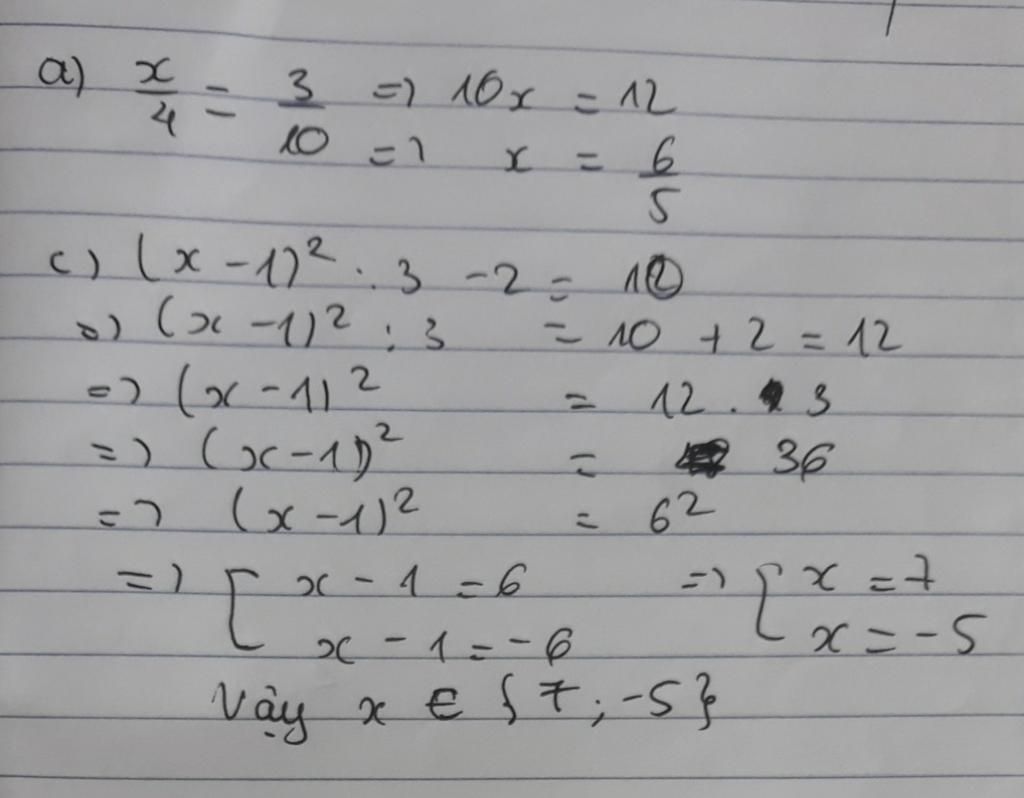 a) x/4 = 3/10 => 10x = 12
=> x = 6/5
c) (x - 1)² : 3 - 2 = 10
=> (x - 1)² : 3 = 10 + 2 = 12
=> (x - 1)² = 12 . 3
=> (x - 1)² = 36
=> (x - 1)² = 6²
=> [ x - 1 = 6 => [ x = 7
x - 1 = -6 x = -5
Vậy x ∈ {7; -5}